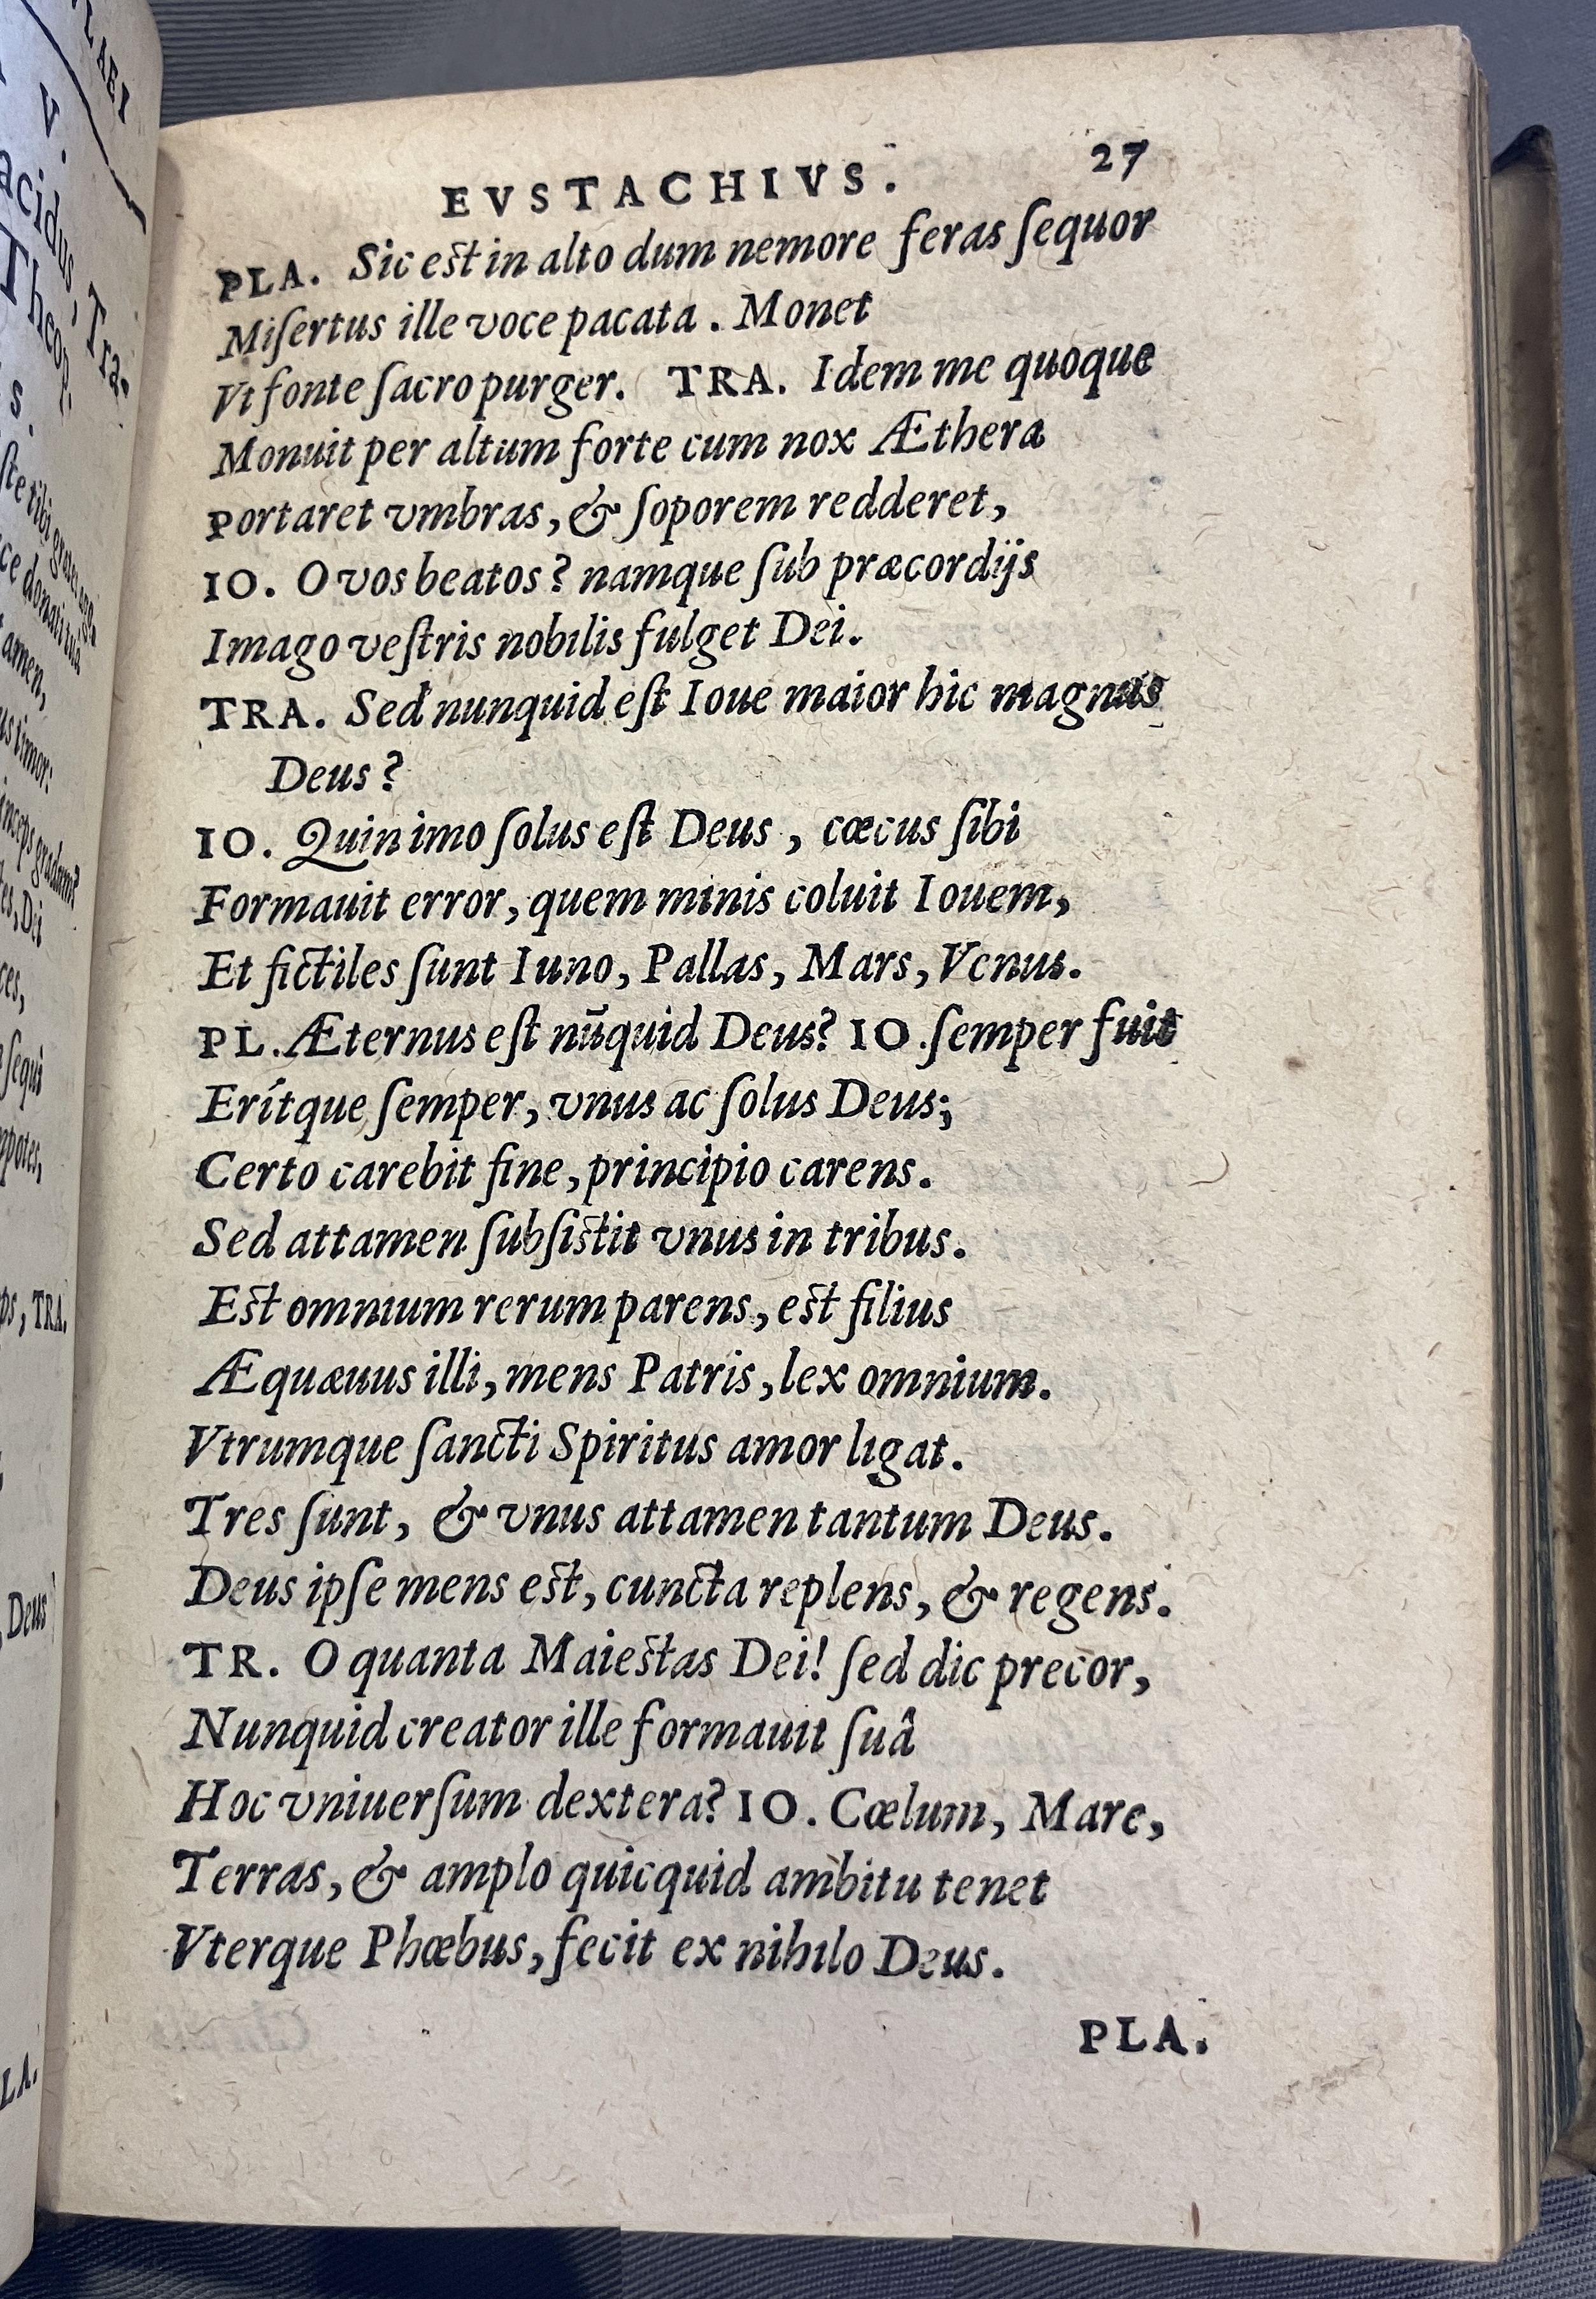 EVSTACHIVS. 27
PLA. Sic est in alto dum nemore feras ſequor
Miſertus ille voce pacata. Monet
Vt fonte ſacro purger. TRA. Idem me quoque
Monuit per altum forte cum nox Æthera
Portaret vmbras, & ſoporem redderet,
IO. O vos beatos? namque ſub præcordijs
Imago veſtris nobilis fulget Dei.
TRA. Sed nunquid eſt Ioue maior hic magnus
Deus?
IO. Quin imo ſolus eſt Deus, cœcus ſibi
Formauit error, quem minis coluit Iouem,
Et fictiles ſunt Iuno, Pallas, Mars, Venus.
PL. Æternus eſt nūquid Deus? IO. ſemper fuit
Erítque ſemper, vnus ac ſolus Deus;
Certo carebit fine, principio carens.
Sed attamen ſubſistit vnus in tribus.
Est omnium rerum parens, est filius
Æquæuus illi, mens Patris, lex omnium.
Vtrumque ſancti Spiritus amor ligat.
Tres ſunt, & vnus attamen tantum Deus.
Deus ipſe mens est, cuncta replens, & regens.
TR. O quanta Maiestas Dei! ſed dic precor,
Nunquid creator ille formauit ſuâ
Hoc vniuerſum dextera? IO. Cœlum, Mare,
Terras, & amplo quicquid ambitu tenet
Vterque Phœbus, fecit ex nihilo Deus.
PLA.